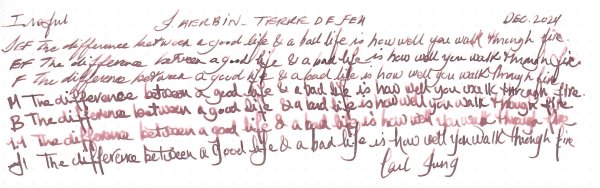 J HERBIN - TERRE DE FEU DEC. 2024
EF The difference between a good life & a bad life is how well you walk through fire.
EF The difference between a good life & a bad life is how well you walk through fire.
F The difference between a good life & a bad life is how well you walk through fire
M The difference between a good life & a bad life is how well you walk through fire.
B The difference between a good life & a bad life is how well you walk through fire
The difference between a good life & a bad life is how well you walk through fire
The difference between a good life & a bad life is how well you walk through fire
Carl Jung